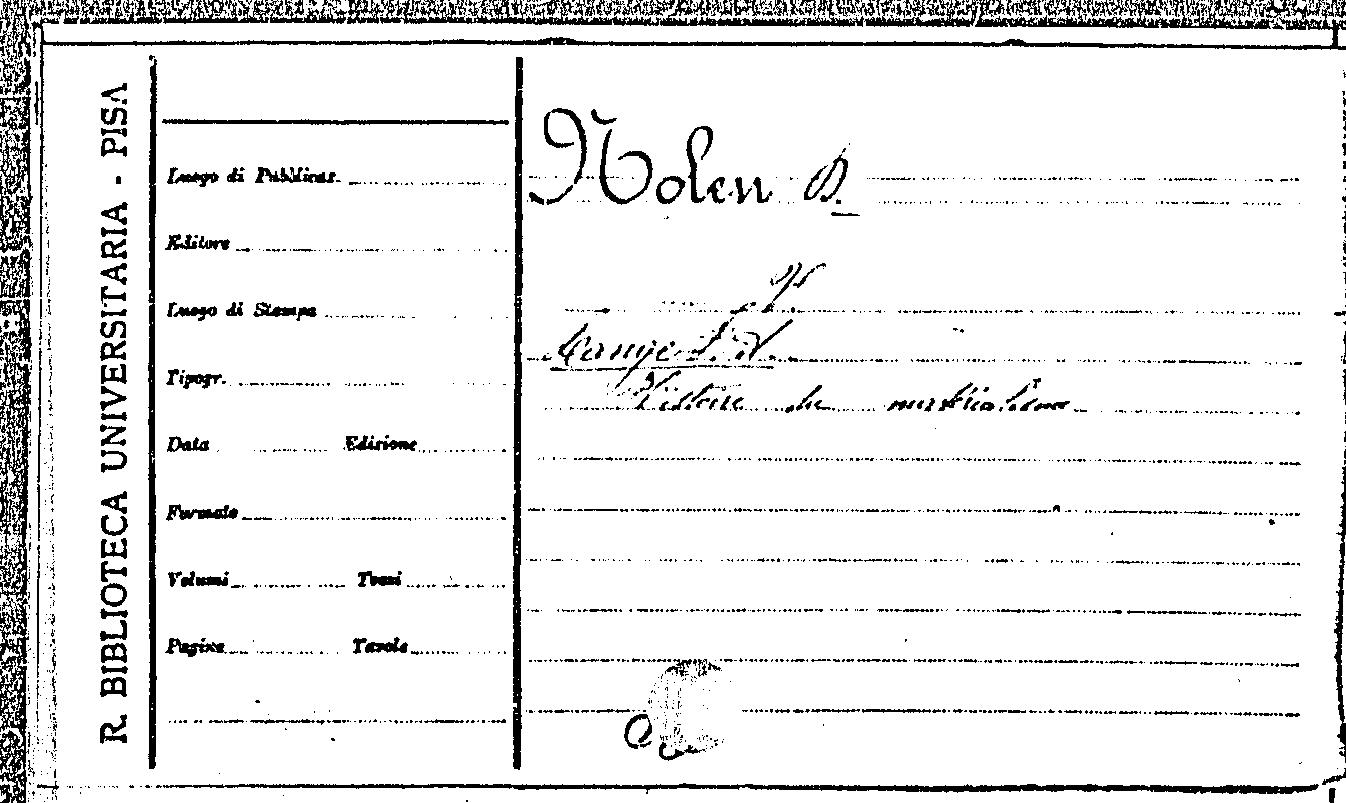 R. BIBLIOTECA UNIVERSITARIA - PISA
Luogo di Pubblicaz.
Editore
Luogo di Stampa
Tipogr.
Data Edizione
Formato
Volumi Tomi
Pagine Tavole
Nolen D.
Lange F. A.
Histoire du matérialisme